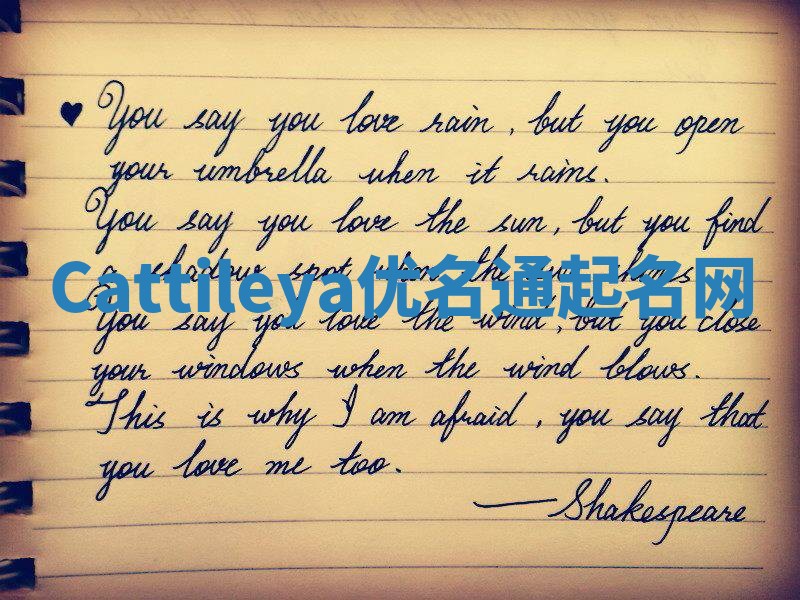 ♥ You say you love rain, but you open
your umbrella when it rains.
You say you love the sun, but you find
a shadow spot when the sun shines
Cattileya优名通起名网
You say you love the wind, but you close
your windows when the wind blows.
This is why I am afraid, you say that
you love me too.
—Shakespeare